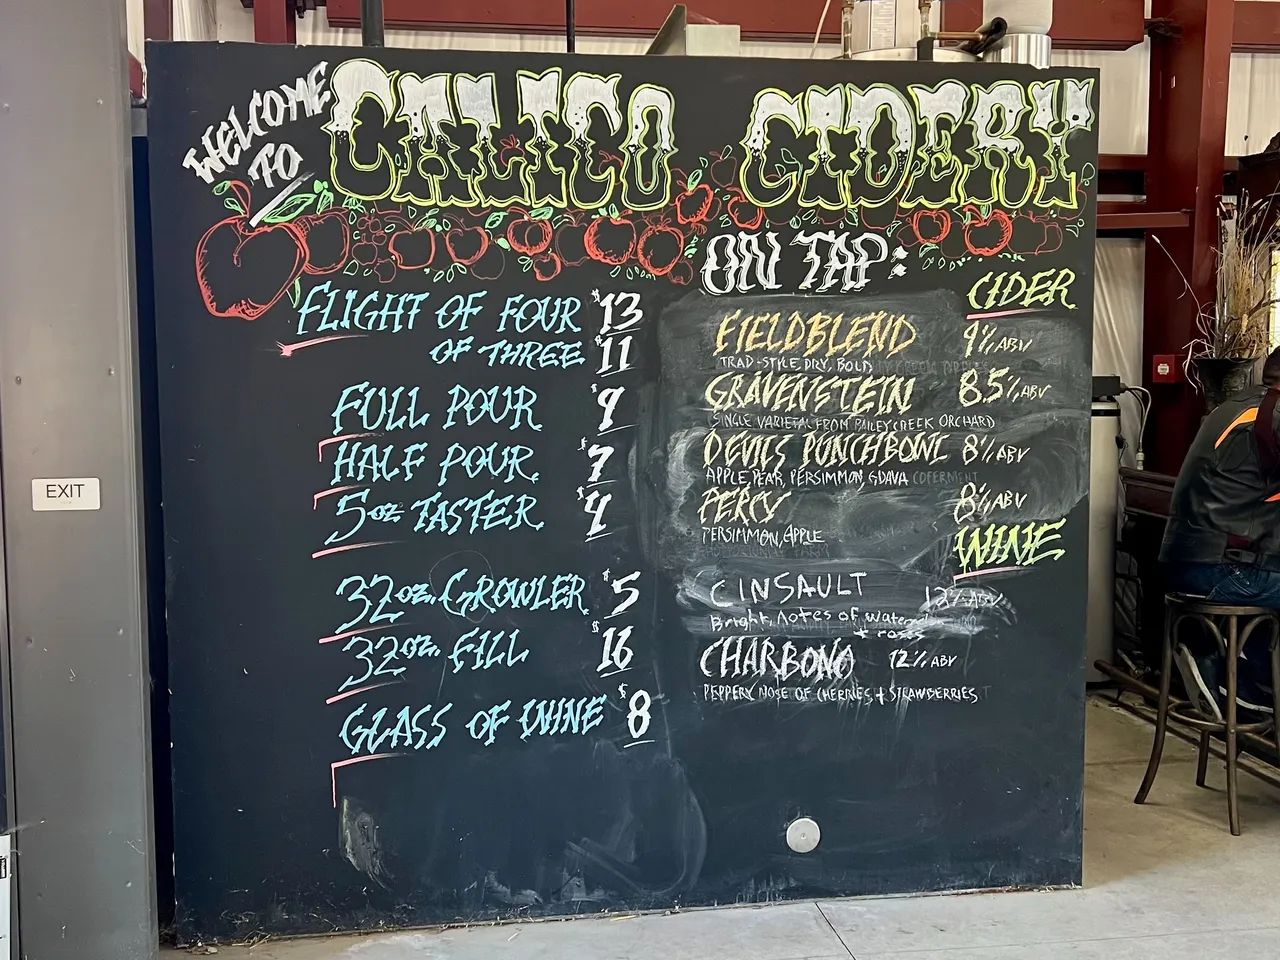 WELCOME TO
CALICO CIDERY
FLIGHT OF FOUR $13
OF THREE $11
FULL POUR $9
HALF POUR $7
5oz TASTER $4
32oz. GROWLER $5
32oz. FILL $16
GLASS OF WINE $8
ON TAP:
CIDER
FIELDBLEND 9% ABV
TRAD-STYLE, DRY, BOLD
GRAVENSTEIN 8.5% ABV
SINGLE VARIETAL FROM BAILEY CREEK ORCHARD
DEVILS PUNCHBOWL 8% ABV
APPLE, PEAR, PERSIMMON, GUAVA COFERMENT
PERCY 8% ABV
PERSIMMON, APPLE
WINE
CINSAULT 12% ABV
Bright, notes of watermelon
+ roses
CHARBONO 12% ABV
PEPPERY NOSE OF CHERRIES + STRAWBERRIES
EXIT